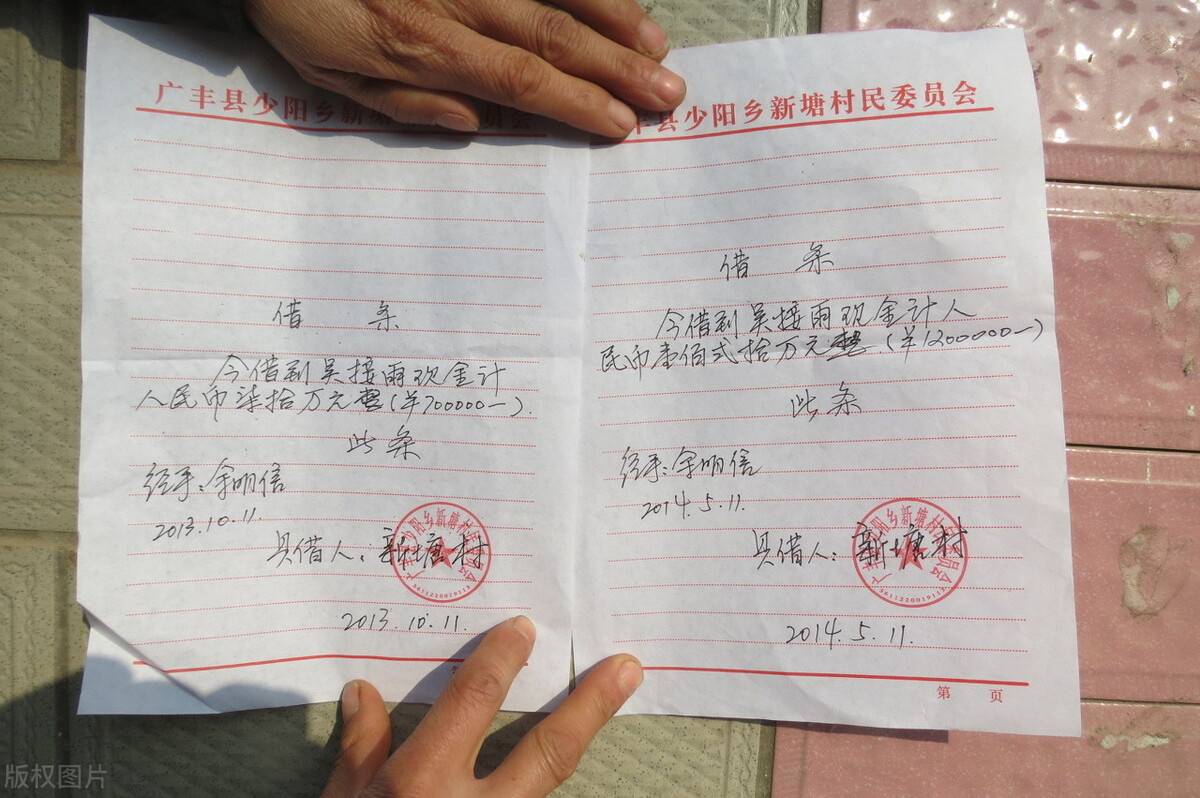 广丰县少阳乡新塘村民委员会
借 条
今借到吴接雨现金计
人民币柒拾万元整(¥700000—).
此条
经手:余明信
2013.10.11.
具借人:新塘村
2013.10.11.
丰县少阳乡新塘村民委员会
借 条
今借到吴接雨现金计人
民币壹佰弍拾万元整.(¥1200000—)
此条
经手:余明信
2014.5.11.
具借人:新塘村
2014.5.11.
第 页
版权图片